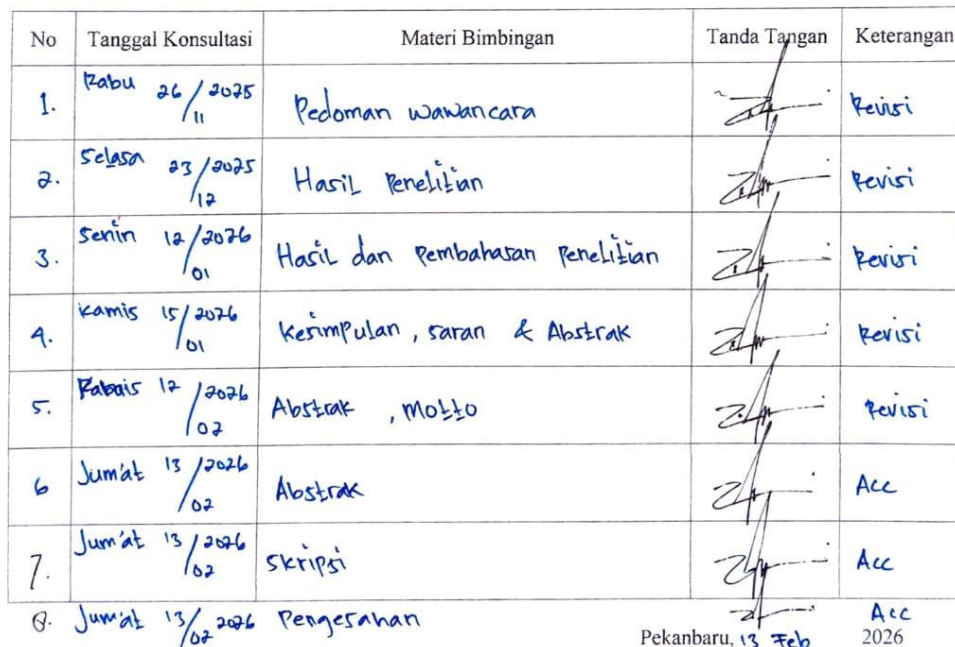 No Tanggal Konsultasi Materi Bimbingan Tanda Tangan Keterangan
1. Rabu 26/11 2025 Pedoman wawancara Revisi
2. Selasa 23/12 2025 Hasil Penelitian Revisi
3. Senin 12/01 2026 Hasil dan Pembahasan Penelitian Revisi
4. Kamis 15/01 2026 Kesimpulan, saran & Abstrak Revisi
5. 12/02 2026 Abstrak, Motto Revisi
6 Jum'at 13/02 2026 Abstrak Acc
7. Jum'at 13/02 2026 Skripsi Acc
8. Jum'at 13/02 2026 Pengesahan Acc
Pekanbaru, 13 Feb 2026